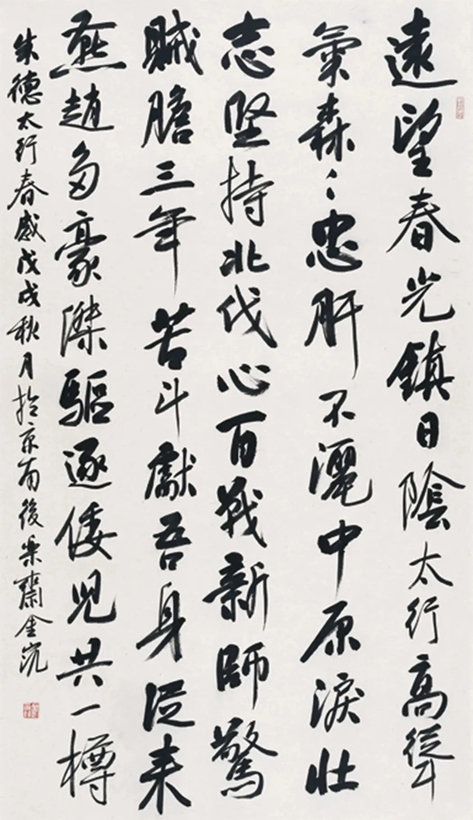 遠望春光鎮日陰太行高聳
氣森々忠肝不灑中原淚壯
志堅持北伐心百戰新師驚
賊膽三年苦斗獻吾身從来
燕趙多豪傑驅逐倭兒共一樽
朱德太行春感戊戌秋月於京南後樂齋金沉